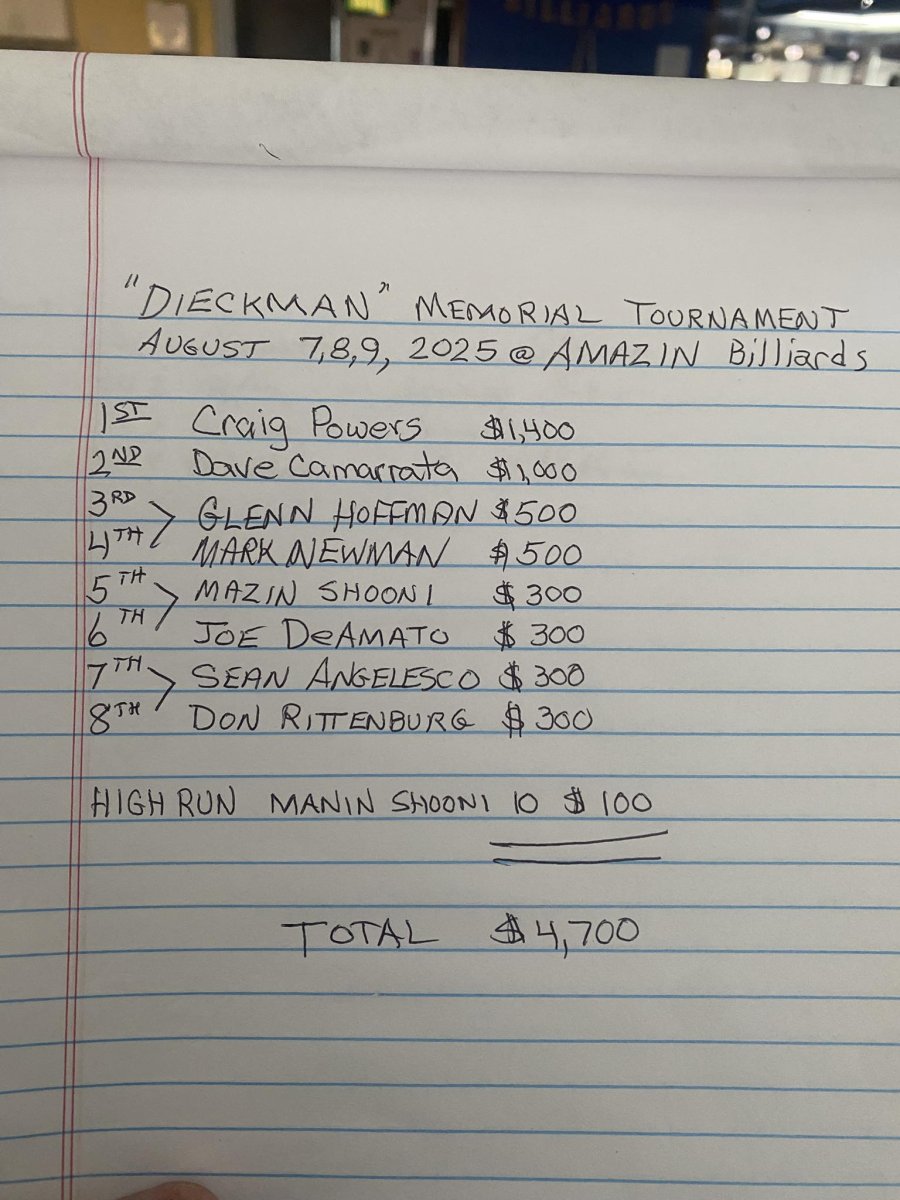 BILLIARDS
"DIECKMAN" MEMORIAL TOURNAMENT
AUGUST 7,8,9, 2025 @ AMAZIN Billiards
1ST Craig Powers $1,400
2ND Dave Camarrata $1,000
3RD > GLENN HOFFMAN $500
4TH MARK NEWMAN $500
5TH > MAZIN SHOONI $300
6TH JOE DeAMATO $300
7TH > SEAN ANGELESCO $300
8TH DON RITTENBURG $300
HIGH RUN MANIN SHOONI 10 $100
TOTAL $4,700